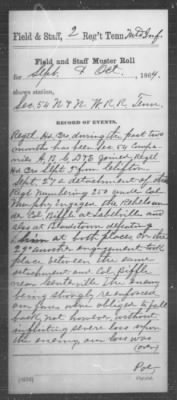 Field & Staff, 2 Reg't Tenn. Mtd Inf.
Field and Staff Muster Roll
for Sept. & Oct., 1864.
shows station,
Sec. 54 N & N W. R. R. Tenn.
RECORD OF EVENTS.
Regtl Hd. Qrs during the past two
months has been Sec 54 Compa-
nies A, B, C, D & E joined Regtl
Hd Qrs Sept 9 from Clifton
Sept 27 a detachment of the
Regt numbering 250 under Col
Murphy engaged the Rebels un-
der Col Biffle at Lobelville and
also at Beardstown defeating
him at both places on the
29 another engagement took
place between the same
detachment and Col Biffle
near Centerville the enemy
being strongly re-enforced
our force were obliged to fall
back not however without
inflicting severe loss upon
the enemy our loss was
(over)